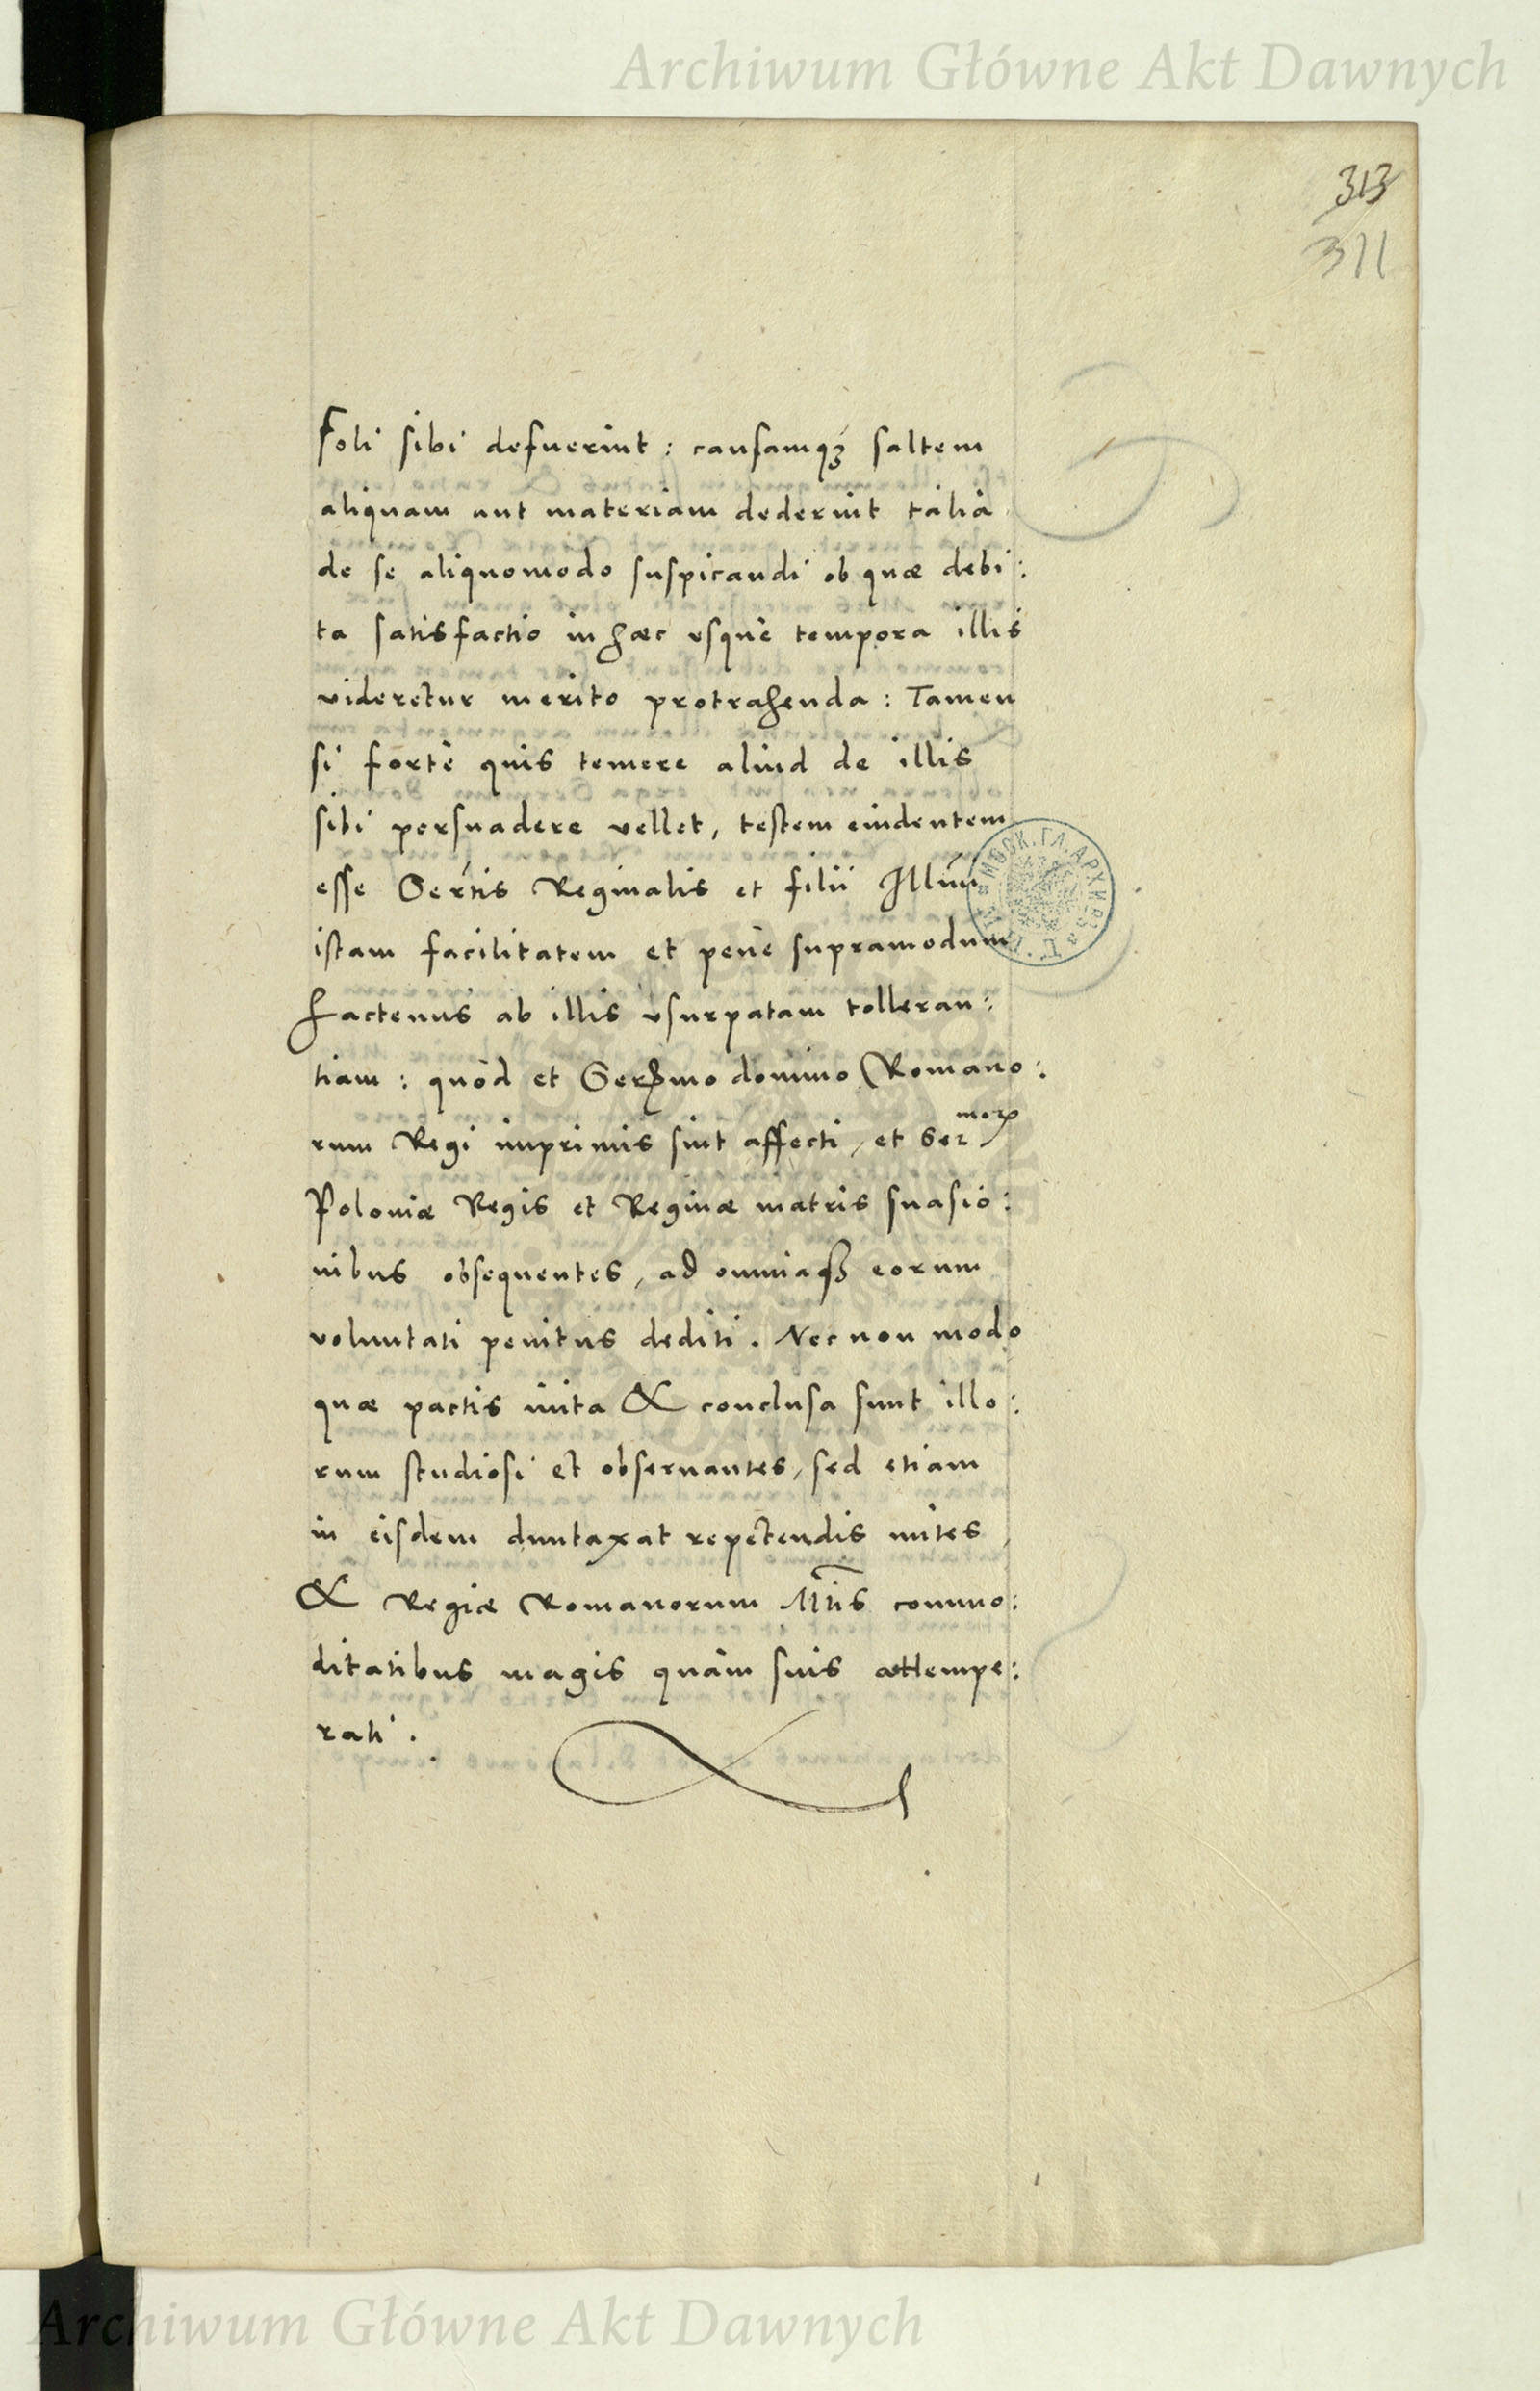 Archiwum Główne Akt Dawnych
313
311
soli sibi defuerint : causamqꝫ saltem
aliquam aut materiam dederint talia
de se aliquomodo suspicandi ob quæ debi:
ta satisfactio in hæc vsquè tempora illis
videretur merito protrahenda : Tamen
si fortè quis temere aliud de illis
sibi persuadere vellet, testem euidentem
esse Sertis Reginalis et filii Illum
istam facilitatem et penè supramodum
hactenus ab illis vsurpatam tolleran:
tiam : quòd et Serßmo domino Romano:
rum Regi imprimis sint affecti, et Ser moꝝ
Poloniæ Regis et Reginæ matris suasio:
nibus obsequentes, ad omniaqꝫ eorum
voluntati penitus dediti. Nec non modo
quæ pactis inita & conclusa sunt illo:
rum studiosi et obseruantes, sed etiam
in eisdem duntaxat repetendis mites,
& Regiæ Romanorum Mtis commo:
ditatibus magis quàm suis attempe:
rati.
Archiwum Główne Akt Dawnych